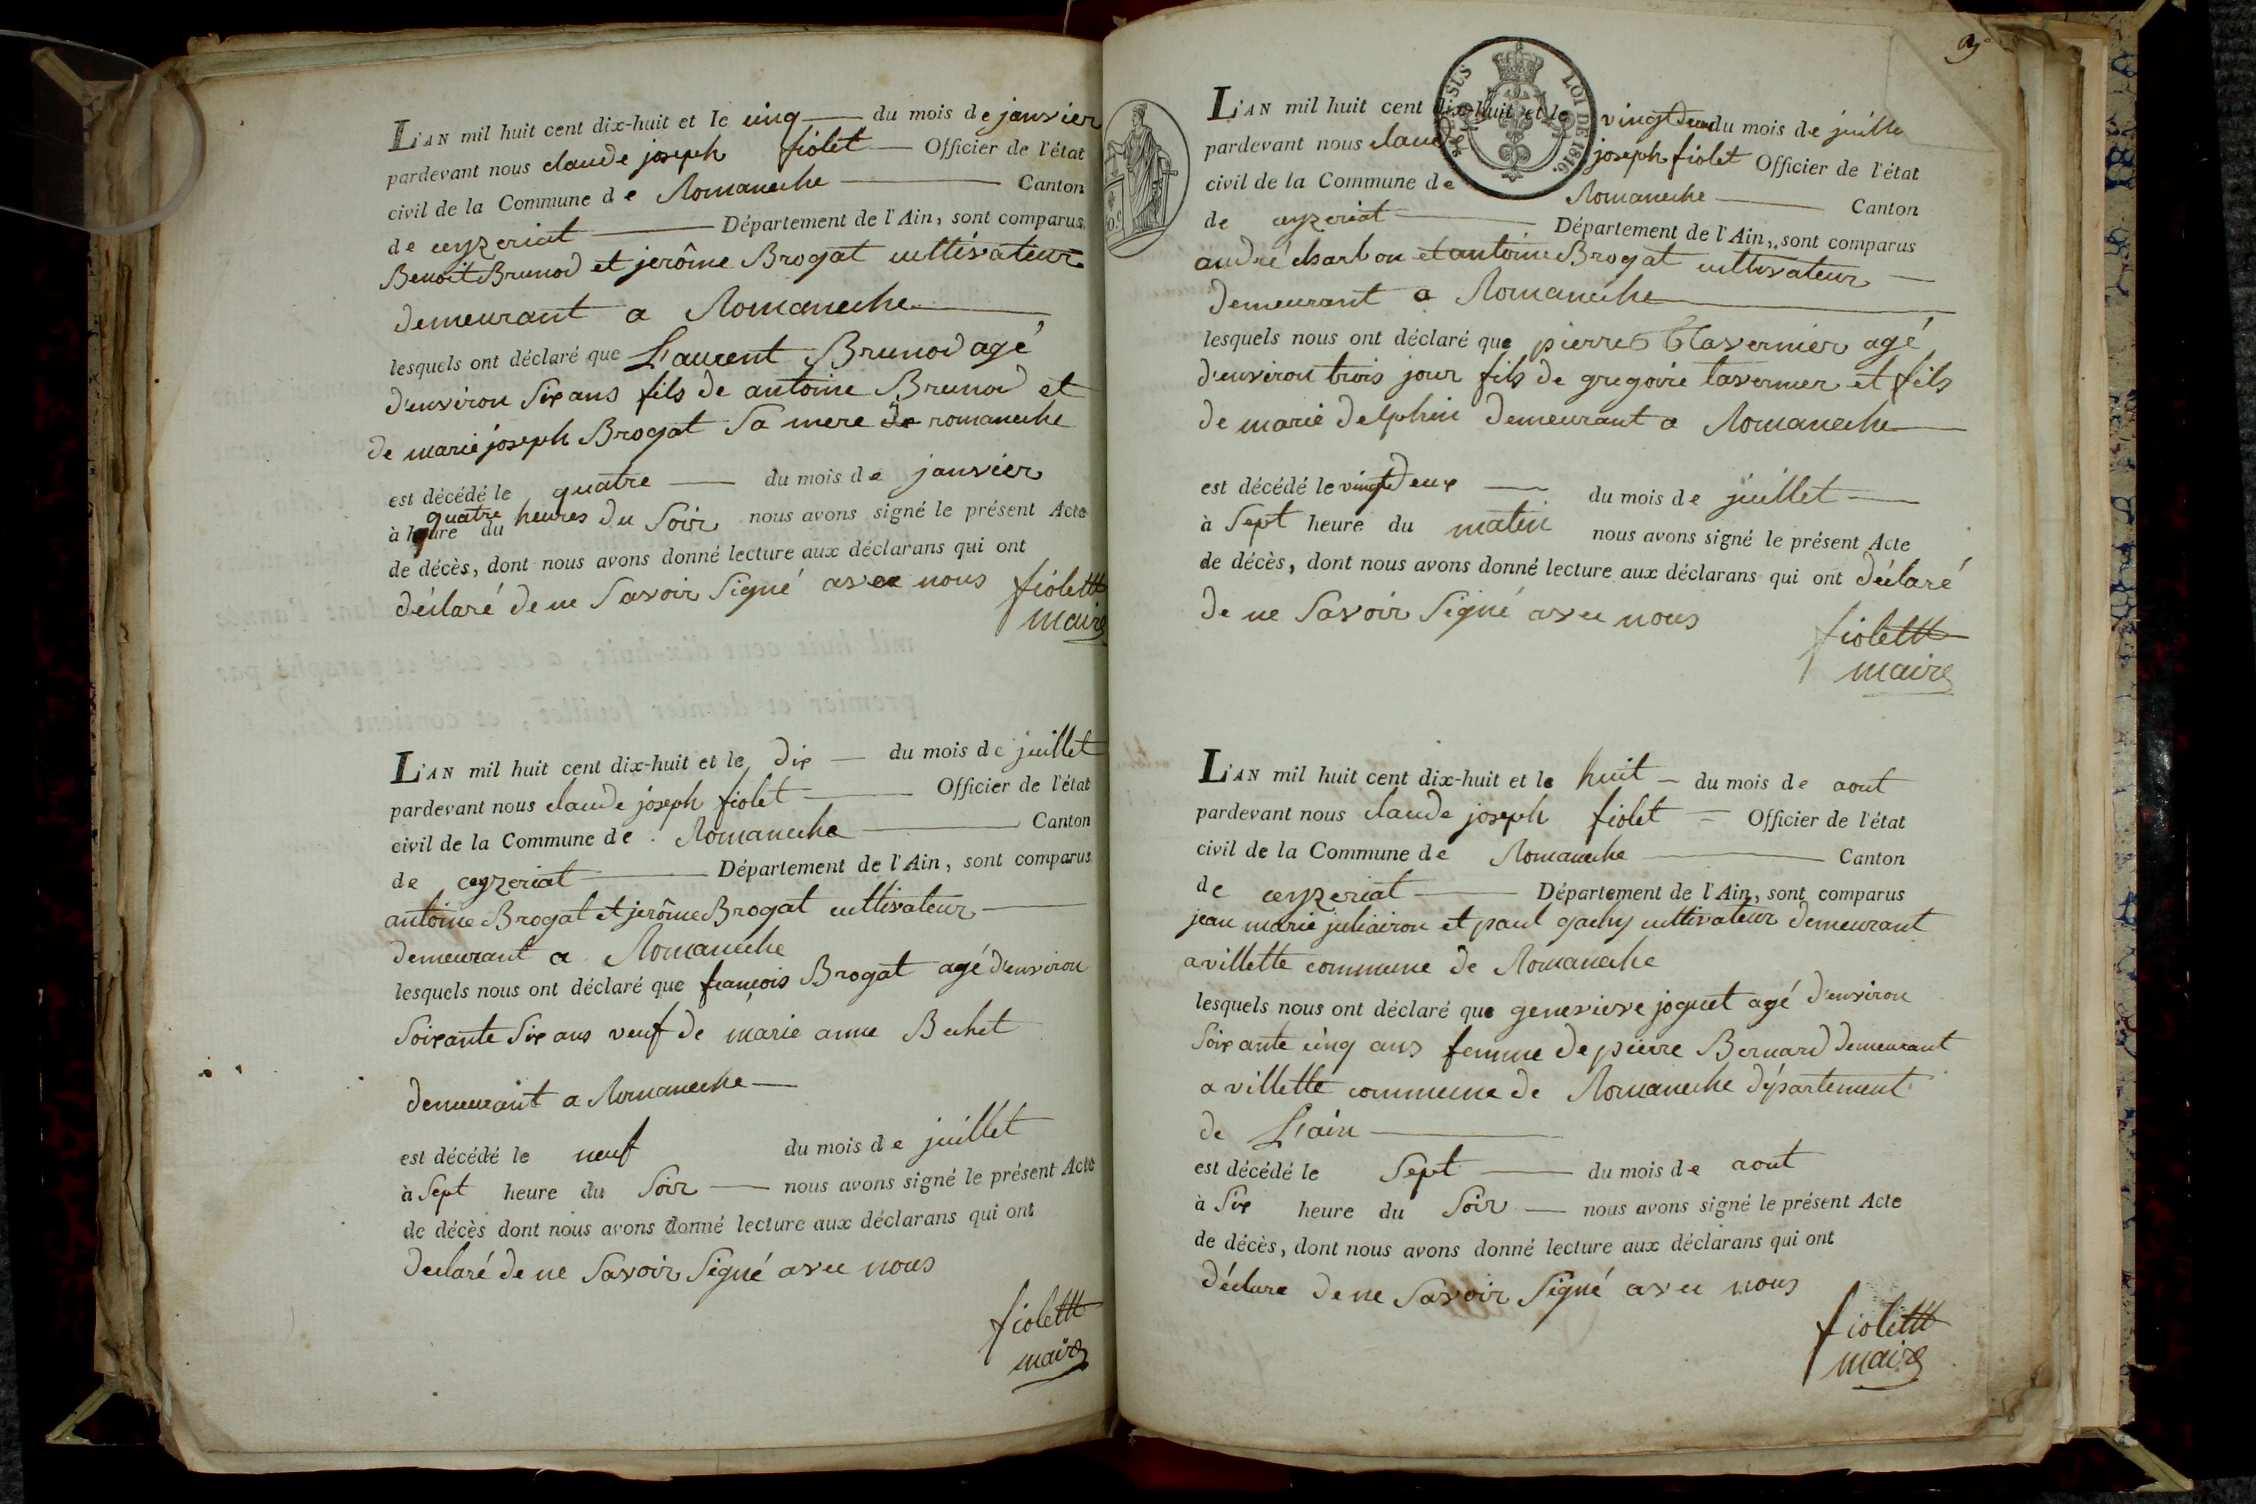 L'AN mil huit cent dix-huit et le cinq du mois de janvier
pardevant nous claude joseph fiolet Officier de l'état
civil de la Commune de Romaneche Canton
de ceyzeriat Département de l'Ain, sont comparus
Benoit Brunod et jerôme Brogat cultivateur
demeurant a Romaneche
lesquels ont déclaré que Laurent Brunod agé
d'environ Six ans fils de antoine Brunod et
de marie joseph Brogat Sa mere de romaneche
est décédé le quatre du mois de janvier
quatre heures
à heure du du Soir nous avons signé le présent Acte
de décès, dont nous avons donné lecture aux déclarans qui ont
déclaré de ne Savoir Signé avec nous fiolet
maire
L'AN mil huit cent dix-huit et le dix du mois de juillet
pardevant nous claude joseph fiolet Officier de l'état
civil de la Commune de Romaneche Canton
de ceyzeriat Département de l'Ain, sont comparus
antoine Brogat et jerôme Brogat cultivateur
demeurant a Romaneche
lesquels nous ont déclaré que françois Brogat agé d'environ
Soixante Six ans veuf de marie anne Bechet
demeurant a Romaneche
est décédé le neuf du mois de juillet
à Sept heure du Soir nous avons signé le présent Acte
de décès dont nous avons donné lecture aux déclarans qui ont
declaré de ne Savoir Signé avec nous
fiolet
maire
LOI DE 1816.
L'AN mil huit cent dix-huit et le vingt deux du mois de juille
pardevant nous claude joseph fiolet Officier de l'état
civil de la Commune de Romaneche Canton
de ceyzeriat Département de l'Ain, sont comparus
andré charbon et antoine Brogat cultivateur
demeurant a Romaneche
lesquels nous ont déclaré que pierre Tavernier agé
d'environ trois jour fils de gregoire tavernier et fils
de marie delphin demeurant a Romaneche
est décédé le vingt deux du mois de juillet
à Sept heure du matin nous avons signé le présent Acte
de décès, dont nous avons donné lecture aux déclarans qui ont déclaré
de ne Savoir Signé avec nous
fiolet
maire
L'AN mil huit cent dix-huit et le huit du mois de aout
pardevant nous claude joseph fiolet Officier de l'état
civil de la Commune de Romaneche Canton
de ceyzeriat Département de l'Ain, sont comparus
jean marie juliairon et paul gachy cultivateur demeurant
a villette commune de Romaneche
lesquels nous ont déclaré que genevieve joguet agé d'environ
Soixante cinq ans femme de pierre Bernard demeurant
a villette commune de Romaneche département
de L'ain
est décédé le Sept du mois de aout
à Six heure du Soir nous avons signé le présent Acte
de décès, dont nous avons donné lecture aux déclarans qui ont
déclare de ne Savoir Signé avec nous
fiolet
maire